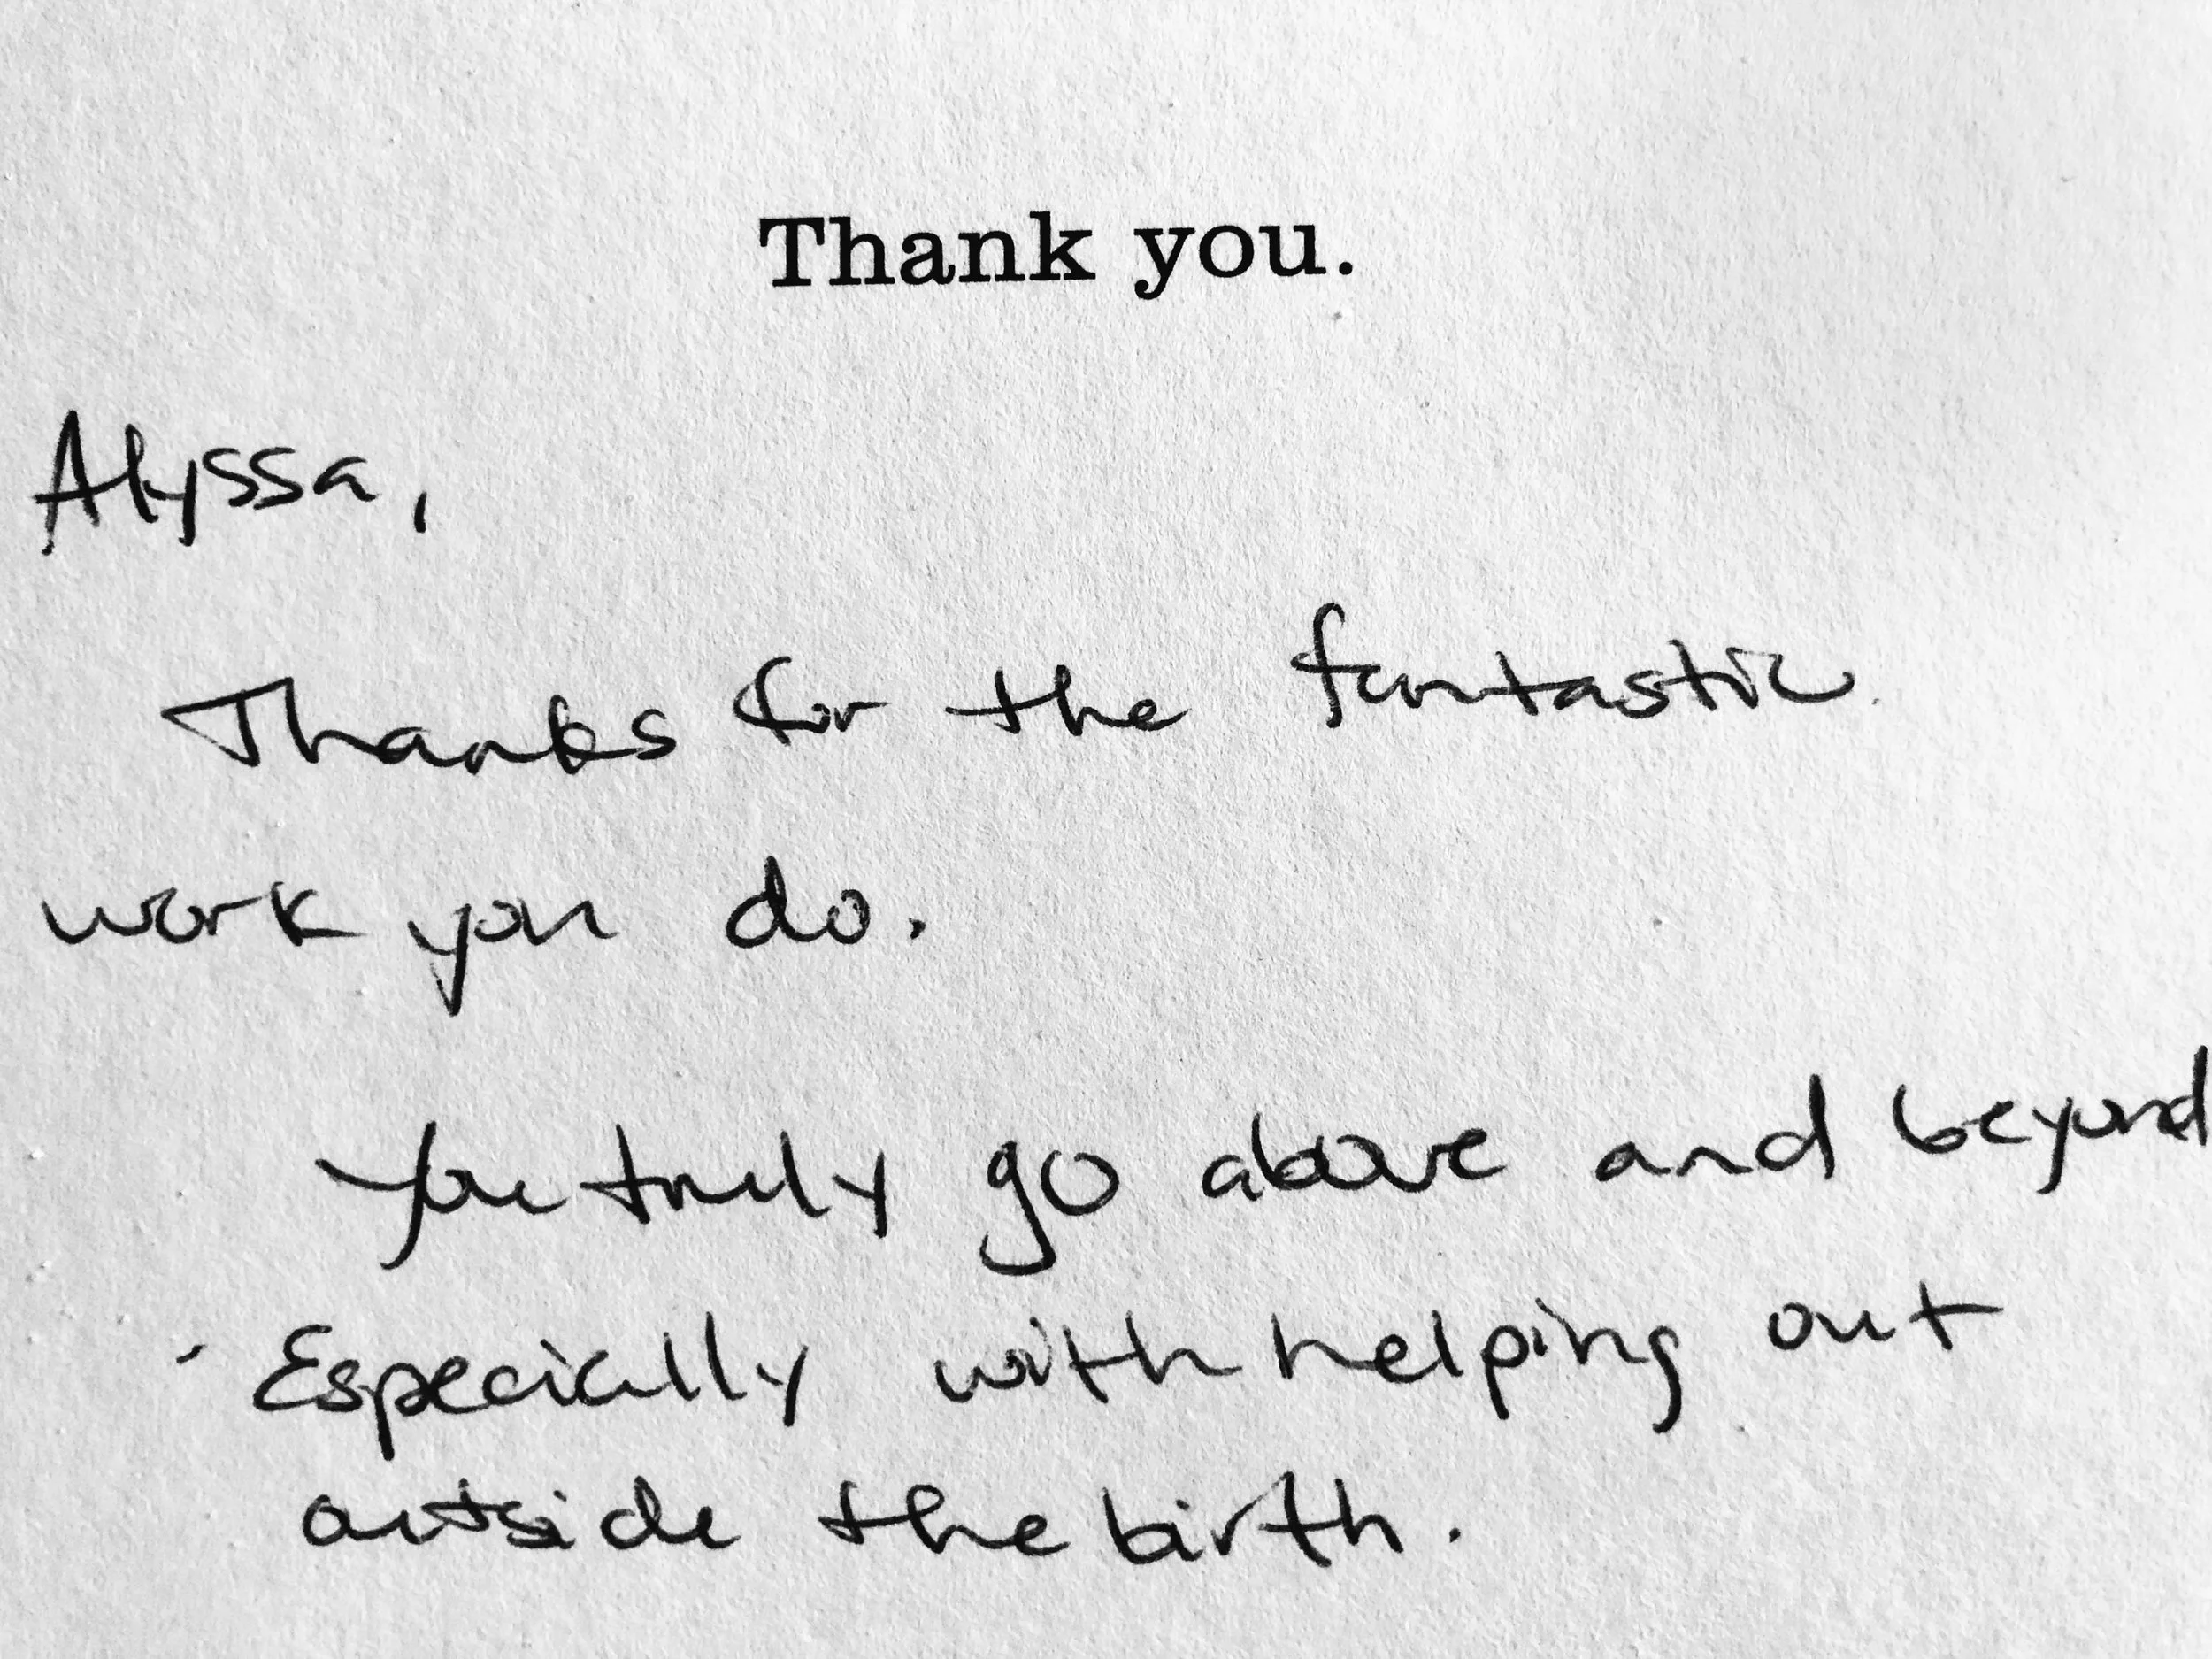 Thank you.
Alyssa,
Thanks for the fantastic
work you do.
You truly go above and beyond
Especially with helping out
outside the birth.